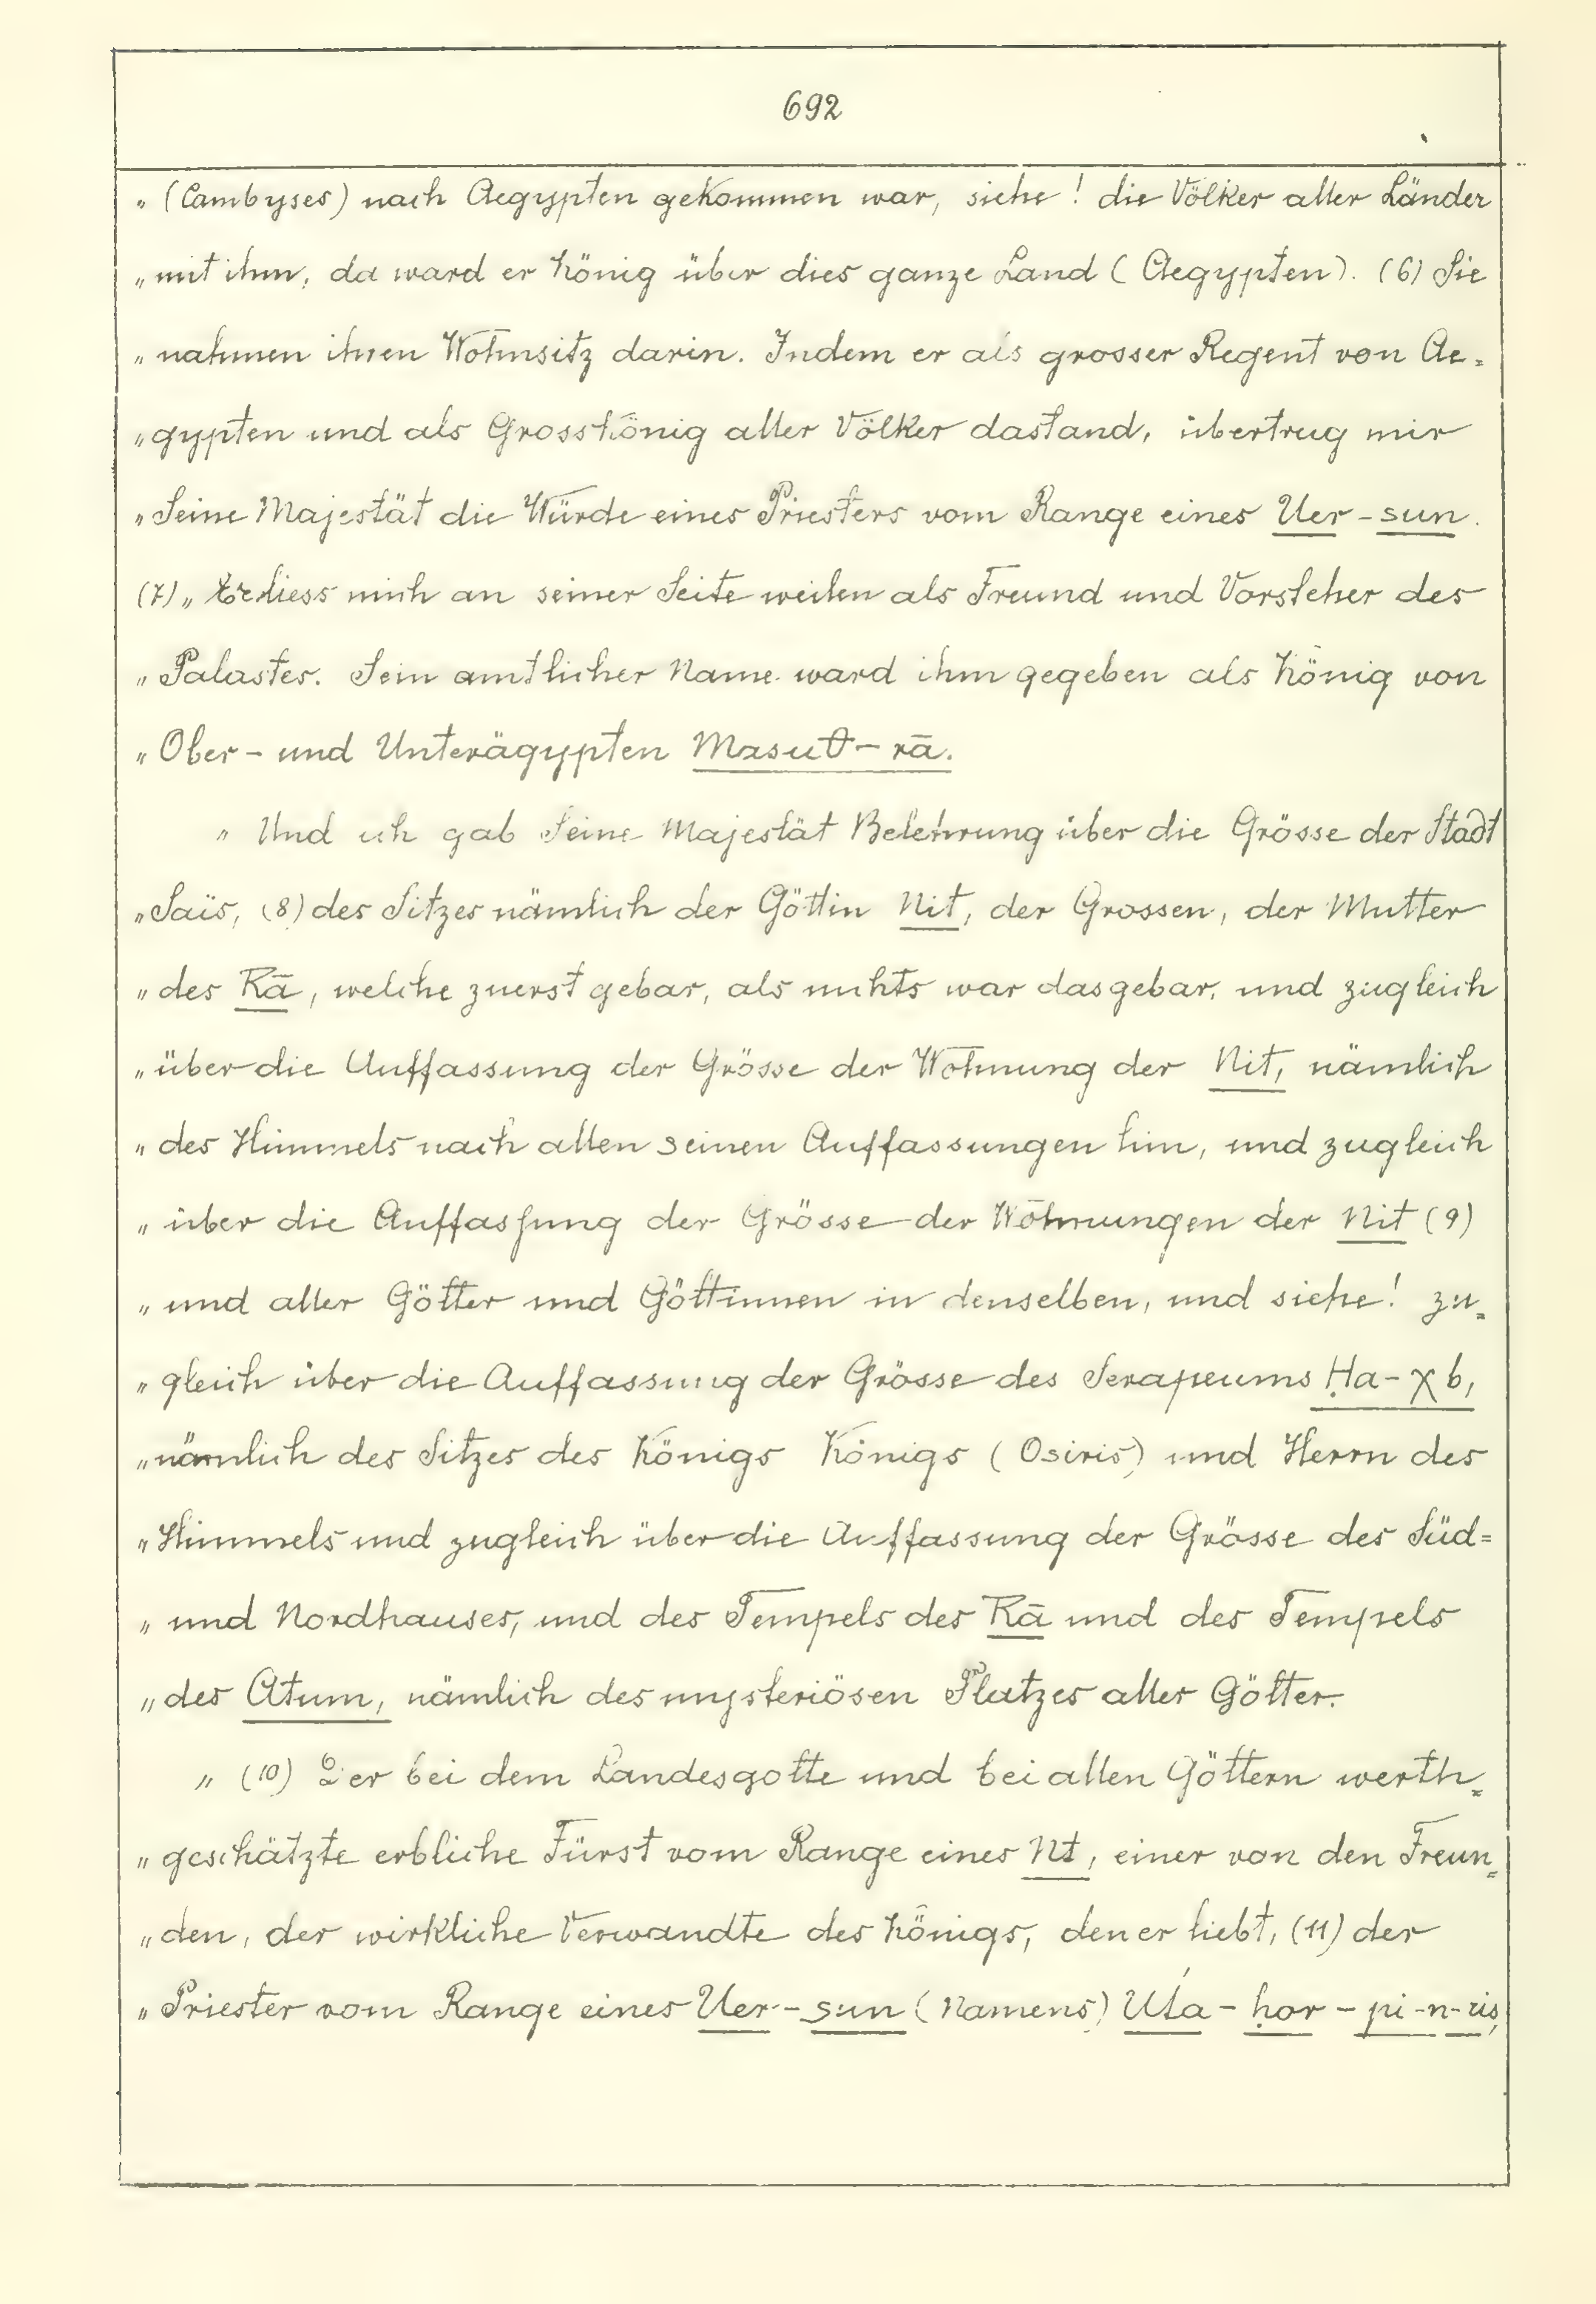 692
„ (Cambyses) nach Aegypten gekommen war, siehe! die Völker aller Länder
„ mit ihm, da ward er König über dies ganze Land (Aegypten). (6) Sie
„ nahmen ihren Wohnsitz darin. Indem er als grosser Regent von Ae-
„ gypten und als Grosskönig aller Völker dastand, übertrug mir
„ Seine Majestät die Würde eines Priesters vom Range eines Uer-sun.
(7) „ Er liess mich an seiner Seite weilen als Freund und Vorsteher des
„ Palastes. Sein amtlicher Name ward ihm gegeben als König von
„ Ober- und Unterägypten Masuθ-rā.
„ Und ich gab Seine Majestät Belehrung über die Grösse der Stadt
„ Saïs, (8) des Sitzes nämlich der Göttin Nit, der Grossen, der Mutter
„ des Rā, welche zuerst gebar, als nichts war das gebar, und zugleich
„ über die Auffassung der Grösse der Wohnung der Nit, nämlich
„ des Himmels nach allen seinen Auffassungen hin, und zugleich
„ über die Auffassung der Grösse der Wohnungen der Nit (9)
„ und aller Götter und Göttinnen in denselben, und siehe! zu-
„ gleich über die Auffassung der Grösse des Serapeums Ḥa-χb,
„ nämlich des Sitzes des Königs Königs (Osiris) und Herrn des
„ Himmels und zugleich über die Auffassung der Grösse des Süd=
„ und Nordhauses, und des Tempels des Rā und des Tempels
„ des Atum, nämlich des mysteriösen Platzes aller Götter.
„ (10) Der bei dem Landesgotte und bei allen Göttern werth-
„ geschätzte erbliche Fürst vom Range eines Nt, einer von den Freun-
„ den, der wirkliche Verwandte des Königs, den er liebt, (11) der
„ Priester vom Range eines Uer-sun (Namens) Uťa-ḥor-pi-n-ris,